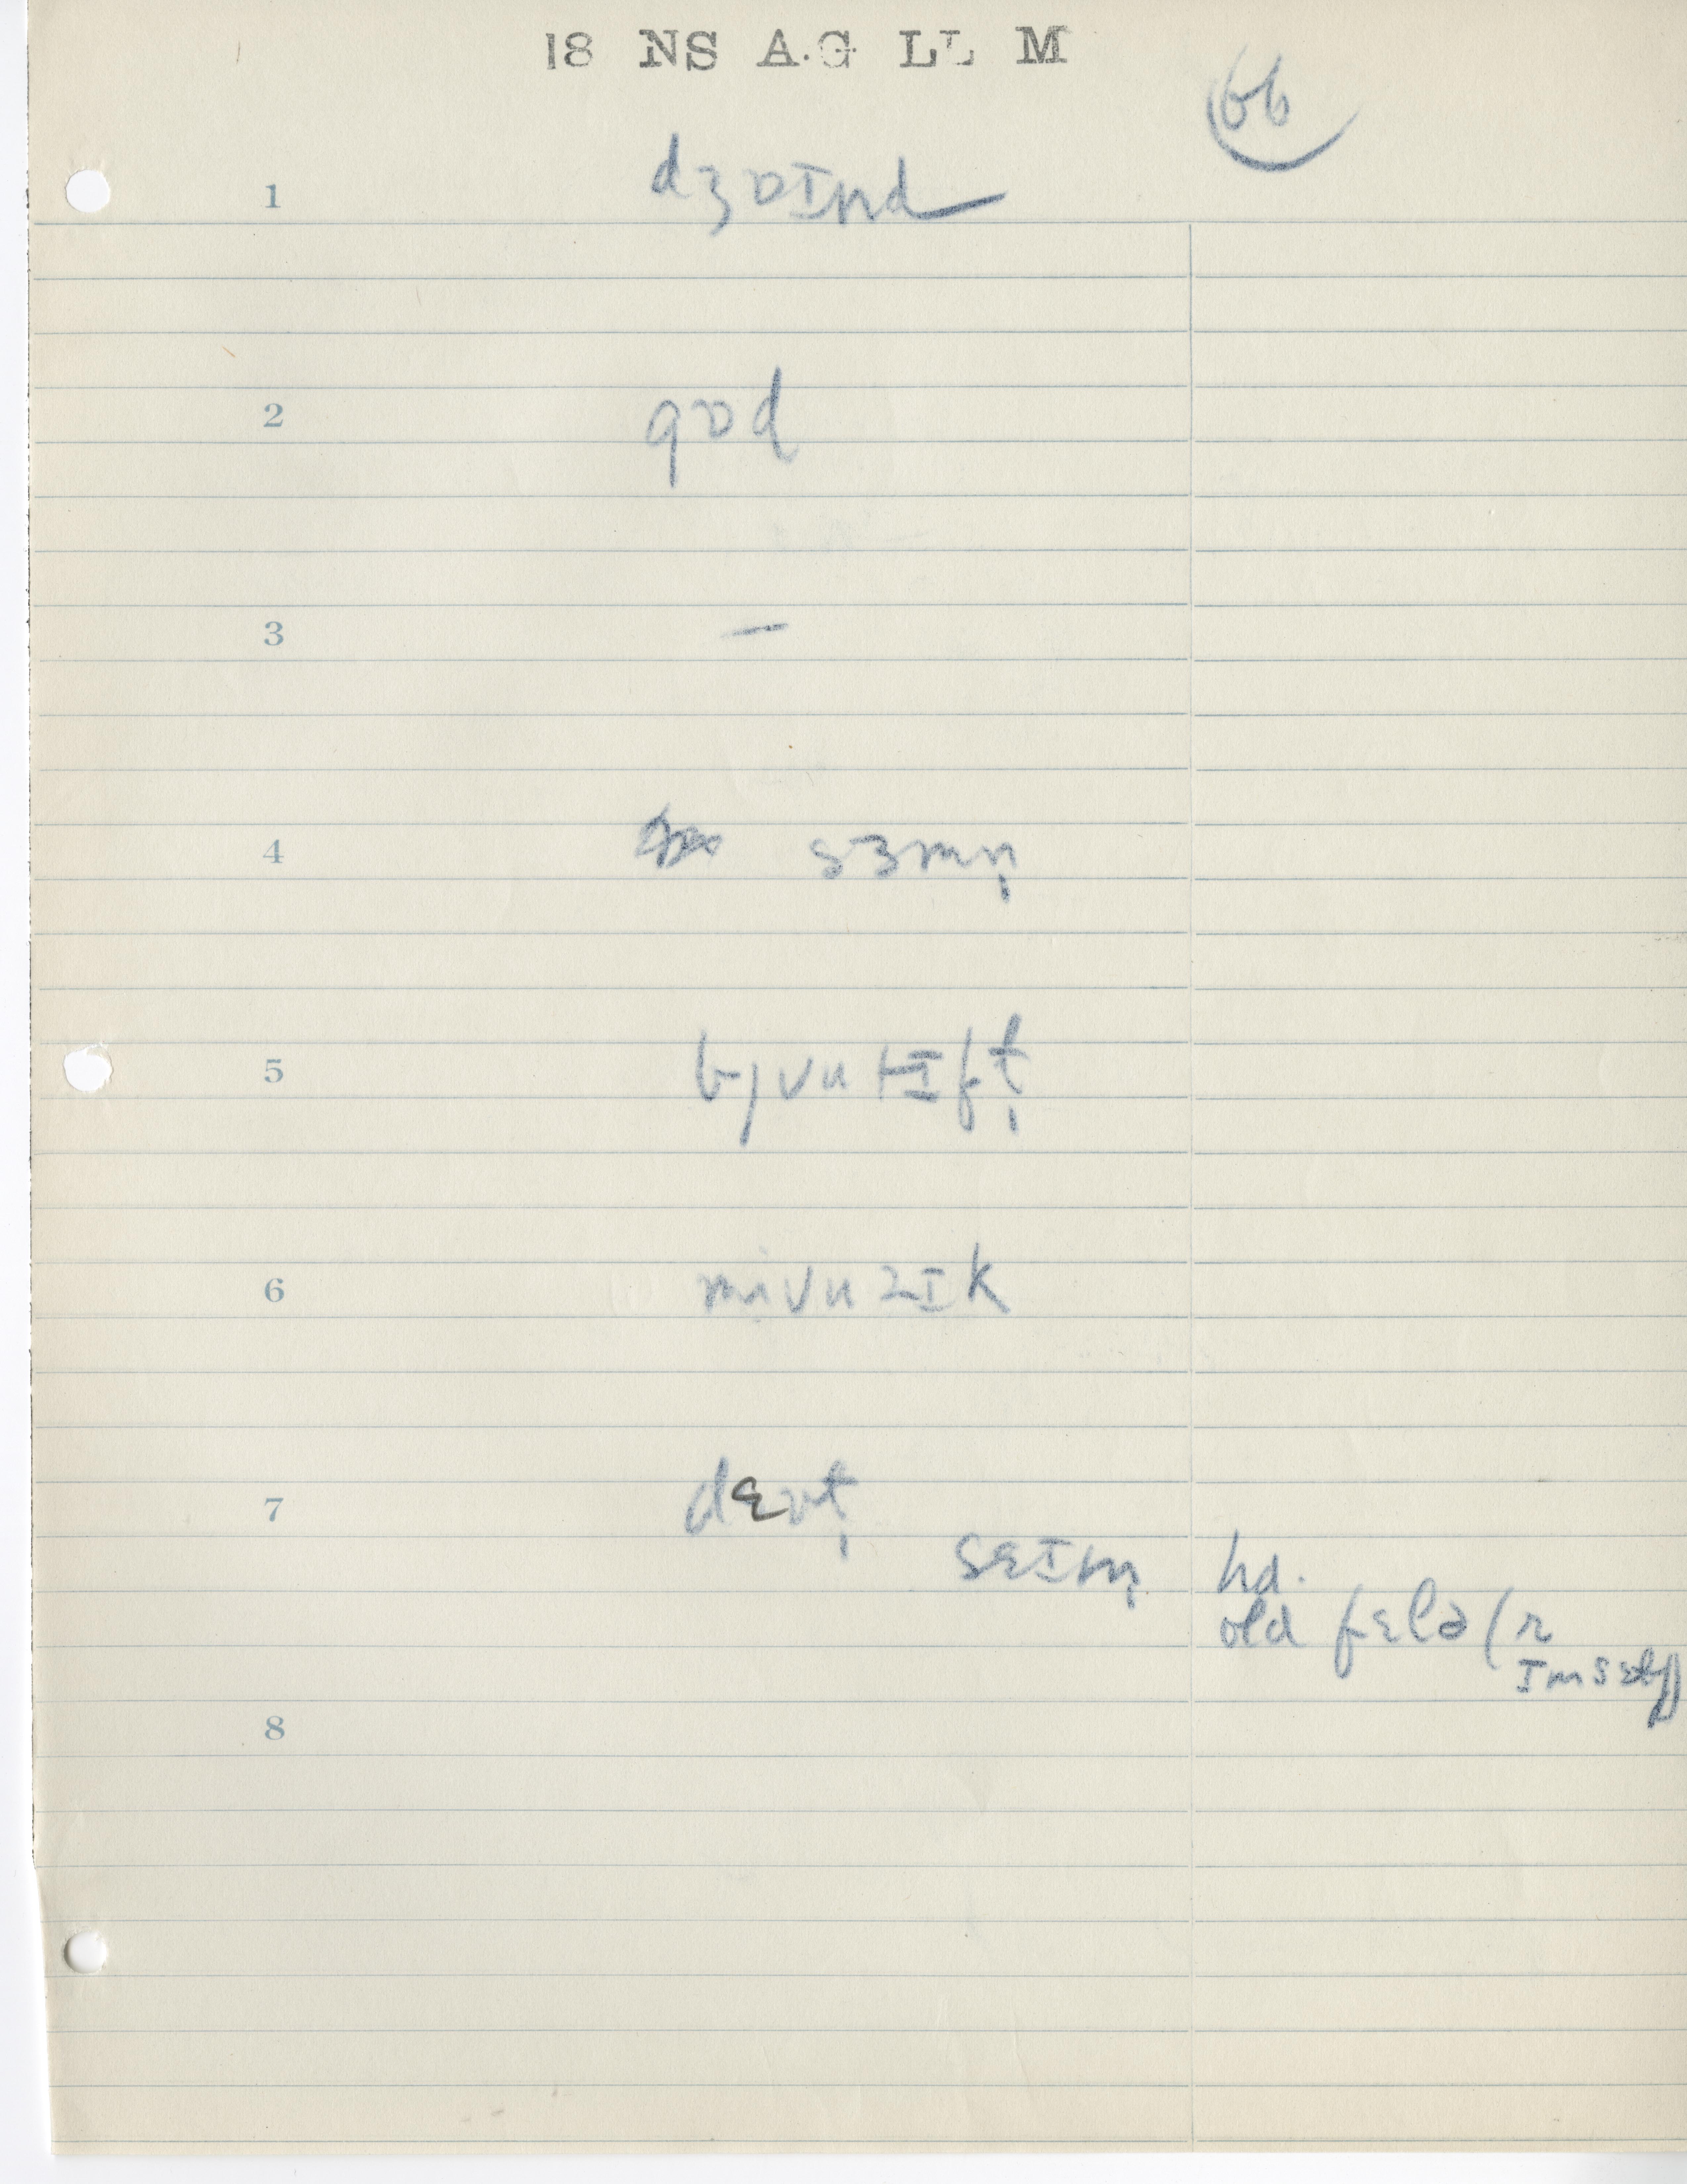 18 NS A.G LL M
66
1 dʒɒɪnd
2 gɒd
3 –
4 sɜmn̩
5 bjʉtɪft̩
6 mjʉzɪk
7 dɛʋt̩
sɛɪm̩ hd.
old fɛlə(r
ɪmsɛlf)
8